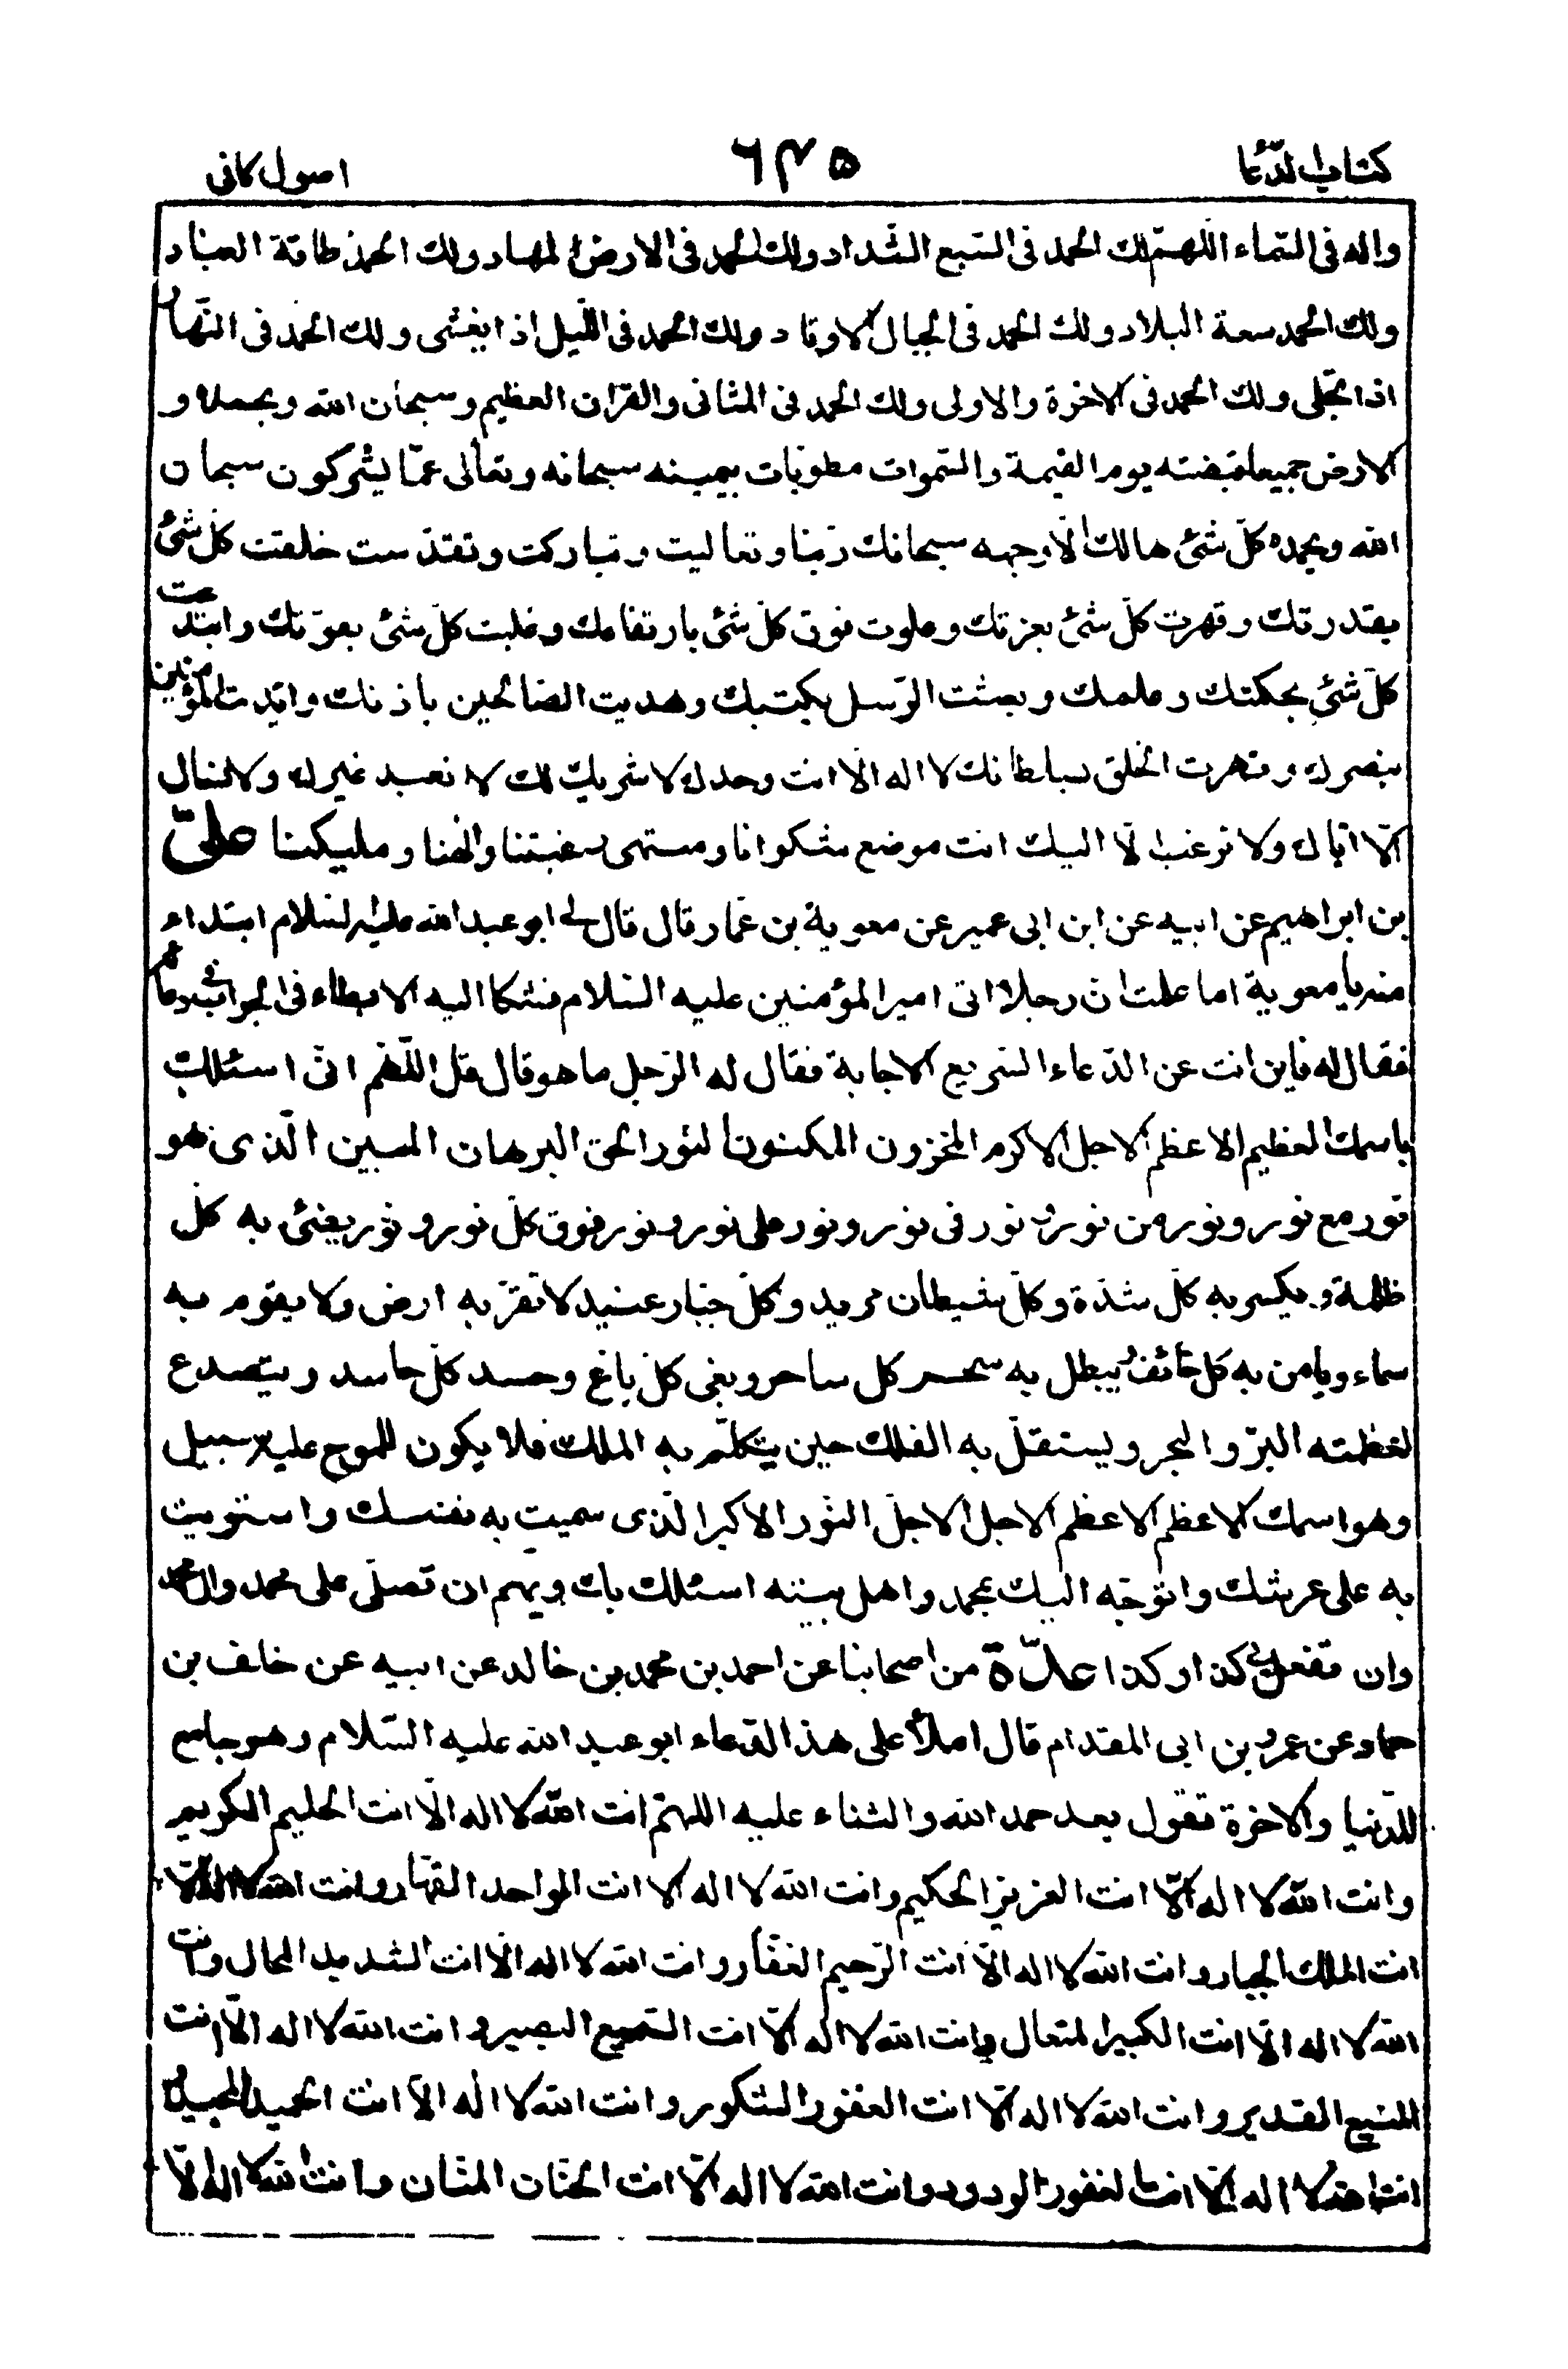 كتاب الدّعا ٦٣٥ اصول كافى
واله فى السّماء اللّهمّ لك الحمد فى السّبع الشّداد ولك الحمد فى الارض المهاد ولك الحمد طاقة العباد
ولك الحمد سعة البلاد ولك الحمد فى الجبال الاوتاد ولك الحمد فى اللّيل اذا يغشى ولك الحمد فى النّهار
اذا تجلّى ولك الحمد فى الاخرة والاولى ولك الحمد فى المثانى والقران العظيم وسبحان الله وبحمده و
الارض جميعا قبضته يوم القيمة والسّموات مطويّات بيمينه سبحانه وتعالى عمّا يشركون سبحان
الله وبحمده كلّ شئ هالك الّا وجهه سبحانك ربّنا وتعاليت وتباركت وتقدّست خلقت كلّ شئ
بقدرتك وقهرت كلّ شئ بعزتك وعلوت فوق كلّ شئ بارتفاعك وغلبت كلّ شئ بقوّتك وابتدعت
كلّ شئ بحكمتك وعلمك وبعثت الرّسل بكتبك وهديت الصّالحين باذنك وايّدت المؤمنين
بنصرك وقهرت الخلق بسلطانك لا اله الّا انت وحدك لا شريك لك لا نعبد غيرك ولا نسال
الّا ايّاك ولا نرغب الّا اليك انت موضع شكوانا ومنتهى رغبتنا والهنا ومليكنا علىّ
بن ابراهيم عن ابيه عن ابن ابى عمير عن معوية بن عمّار قال قال لى ابو عبد الله عليه السّلام ابتداء
منه يا معوية اما علمت انّ رجلا اتى امير المؤمنين عليه السّلام فشكا اليه الابطاء فى الجواب فى دعائه
فقال له فاين انت عن الدّعاء السّريع الاجابة فقال له الرّجل ما هو قال قل اللّهمّ انّى اسئلك
باسمك العظيم الاعظم الاجل الاكرم المخزون المكنون النّور الحق البرهان المبين الّذى هو
نور مع نور ونور من نور ونور فى نور ونور على نور ونور فوق كلّ نور ونور يضئ به كلّ
ظلمة ويكسر به كلّ شدّة وكلّ شيطان مريد وكلّ جبّار عنيد لا تقرّ به ارض ولا يقوم به
سماء ويامن به كلّ خائف ويبطل به سحر كل ساحر وبغى كلّ باغ وحسد كلّ حاسد ويتصدع
لعظمته البرّ والبحر ويستقلّ به الفلك حين يتكلّم به الملك فلا يكون للموج عليه سبيل
وهو اسمك الاعظم الاعظم الاجل الاجلّ النّور الاكبر الّذى سميت به نفسك واستويت
به على عرشك واتوجّه اليك بمحمد واهل بيته اسئلك بك وبهم ان تصلّى على محمد وال محمد
وان تفعل بى كذا وكذا عدّة من اصحابنا عن احمد بن محمد بن خالد عن ابيه عن خلف بن
حماد عن عمرو بن ابى المقدام قال املا على هذا الدّعاء ابو عبد الله عليه السّلام وهو جامع
للدّنيا والاخرة تقول بعد حمد الله والثناء عليه اللهمّ انت الله لا اله الّا انت الحليم الكريم
وانت الله لا اله الّا انت العزيز الحكيم وانت الله لا اله الا انت الواحد القهّار وانت الله لا اله الّا
انت الملك الجبار وانت الله لا اله الّا انت الرّحيم الغفّار وانت الله لا اله الّا انت الشديد المحال وانت
الله لا اله الّا انت الكبير المتعال وانت الله لا اله الّا انت السّميع البصير وانت الله لا اله الّا انت
المنيع القدير وانت الله لا اله الّا انت الغفور الشكور وانت الله لا اله الّا انت الحميد المجيد و
انت الله لا اله الّا انت الغفور الودود وانت الله لا اله الّا انت الحنّان المنّان وانت الله لا اله الّا